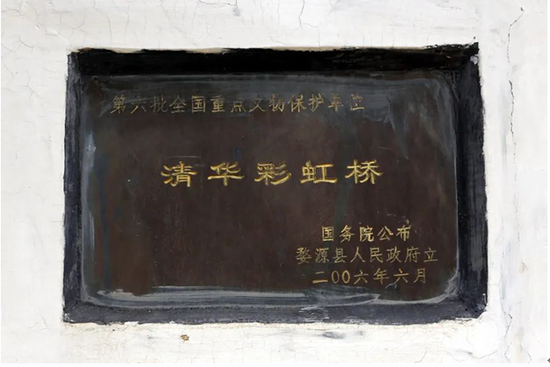 第六批全国重点文物保护单位
清华彩虹桥
国务院公布
婺源县人民政府立
二〇〇六年六月